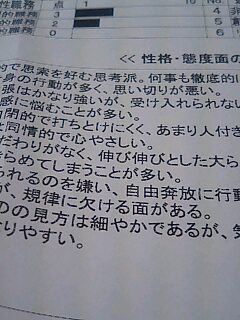 的職務 点 1 10
的職務 3 4 非
的職務 5
的職務 0 6
<< 性格・態度面の
的で思索を好む思考派。何事も徹底的に
身の行動が多く、思い切りが悪い。
張はかなり強いが、受け入れられない
感に悩むことが多い。
閉的で打ちとけにくく、あまり人付き
同情的で心やさしい。
だわりがなく、伸び伸びとした大ら
きらめてしまうことが多い。
られるのを嫌い、自由奔放に行動
が、規律に欠ける面がある。
のの見方は細やかであるが、気
なりやすい。